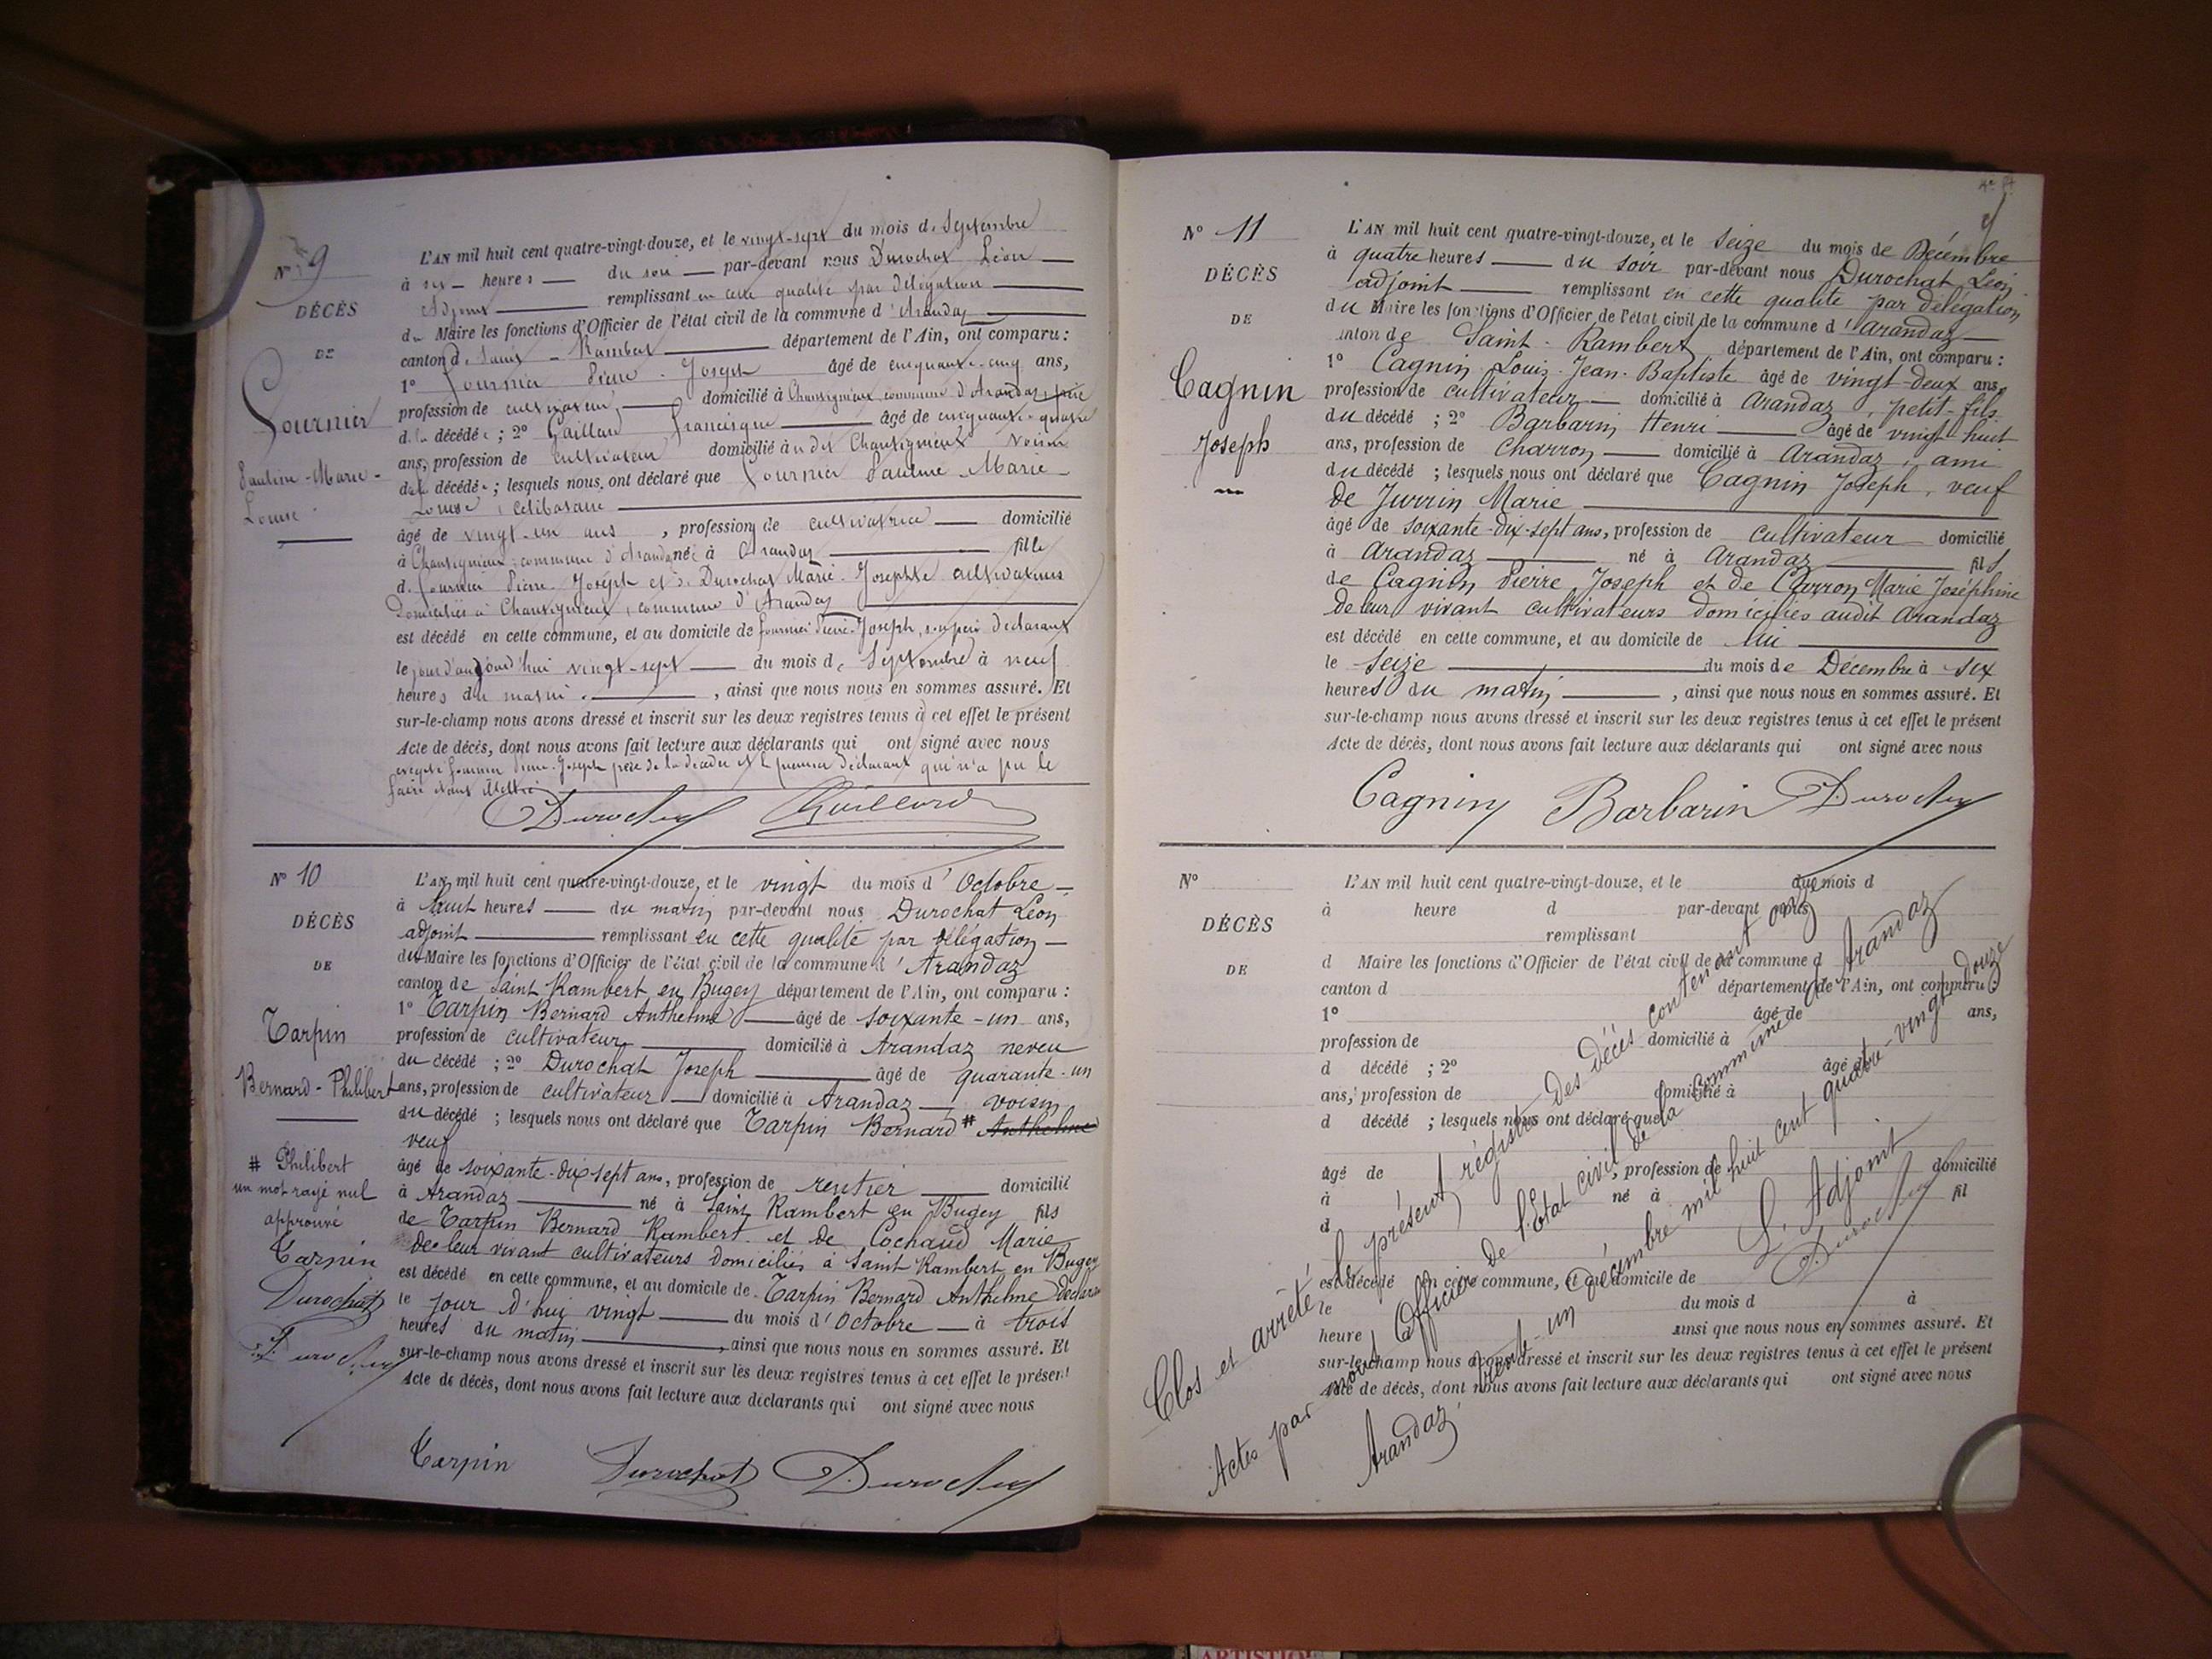 N° 9
DÉCÈS
DE
Fournier
Pauline-Marie-
Louise
L'AN mil huit cent quatre-vingt-douze, et le vingt-sept du mois de Septembre
à six heures du soir par-devant nous Durochat Léon
Adjoint remplissant en cette qualité par délégation
du Maire les fonctions d'Officier de l'état civil de la commune d'Arandaz
canton de Saint-Rambert département de l'Ain, ont comparu :
1° Fournier Pierre-Joseph âgé de cinquante-cinq ans,
profession de cultivateur domicilié à Chantignieux, commune d'Arandaz, père
de la décédée ; 2° Gaillard Francisque âgé de cinquante-quatre
ans, profession de cultivateur domicilié au dit Chantignieux voisin
de la décédée ; lesquels nous ont déclaré que Fournier Pauline-Marie-
Louise, célibataire
âgé de vingt-un ans, profession de cultivatrice domicilié
à Chantignieux, commune d'Arandaz né à Arandaz fille
de Fournier Pierre-Joseph et de Durochat Marie-Josephte cultivateurs
domiciliés à Chantignieux, commune d'Arandaz
est décédé en cette commune, et au domicile de Fournier Pierre-Joseph, son père déclarant
le jour d'aujourd'hui vingt-sept du mois de Septembre à neuf
heures du matin, ainsi que nous nous en sommes assuré. Et
sur-le-champ nous avons dressé et inscrit sur les deux registres tenus à cet effet le présent
Acte de décès, dont nous avons fait lecture aux déclarants qui ont signé avec nous
excepté Fournier Pierre-Joseph père de la décédée et le premier déclarant qui n'a pu le
faire étant illettré
Durochat Gaillard
N° 10
DÉCÈS
DE
Tarpin
Bernard-Philibert
# Philibert
un mot rayé nul
approuvé
Tarpin
Durochat
Durochat
L'AN mil huit cent quatre-vingt-douze, et le vingt du mois d'Octobre
à huit heures du matin par-devant nous Durochat Léon
adjoint remplissant en cette qualité par délégation
du Maire les fonctions d'Officier de l'état civil de la commune d'Arandaz
canton de Saint Rambert en Bugey département de l'Ain, ont comparu :
1° Tarpin Bernard Anthelme âgé de soixante-un ans,
profession de cultivateur domicilié à Arandaz neveu
du décédé ; 2° Durochat Joseph âgé de quarante-un
ans, profession de cultivateur domicilié à Arandaz voisin
du décédé ; lesquels nous ont déclaré que Tarpin Bernard # Anthelme
veuf
âgé de soixante-dix-sept ans, profession de rentier domicilié
à Arandaz né à Saint Rambert en Bugey fils
de Tarpin Bernard Rambert et de Cochaud Marie
de leur vivant cultivateurs domiciliés à Saint Rambert en Bugey
est décédé en cette commune, et au domicile de Tarpin Bernard Anthelme déclarant
le jour d'hui vingt du mois d'Octobre à trois
heures du matin, ainsi que nous nous en sommes assuré. Et
sur-le-champ nous avons dressé et inscrit sur les deux registres tenus à cet effet le présent
Acte de décès, dont nous avons fait lecture aux déclarants qui ont signé avec nous
Tarpin Durochat Durochat
N° 11
DÉCÈS
DE
Cagnin
Joseph
L'AN mil huit cent quatre-vingt-douze, et le seize du mois de Décembre
à quatre heures du soir par-devant nous Durochat Léon
adjoint remplissant en cette qualité par délégation
du Maire les fonctions d'Officier de l'état civil de la commune d'Arandaz
canton de Saint-Rambert département de l'Ain, ont comparu :
1° Cagnin Louis-Jean-Baptiste âgé de vingt-deux ans,
profession de cultivateur domicilié à Arandaz, petit-fils
du décédé ; 2° Barbarin Henri âgé de vingt-huit
ans, profession de charron domicilié à Arandaz, ami
du décédé ; lesquels nous ont déclaré que Cagnin Joseph, veuf
de Juvrin Marie
âgé de soixante-dix-sept ans, profession de cultivateur domicilié
à Arandaz né à Arandaz fils
de Cagnin Pierre Joseph et de Carron Marie Joséphine
de leur vivant cultivateurs domiciliés audit Arandaz
est décédé en cette commune, et au domicile de lui
le seize du mois de Décembre à six
heures du matin, ainsi que nous nous en sommes assuré. Et
sur-le-champ nous avons dressé et inscrit sur les deux registres tenus à cet effet le présent
Acte de décès, dont nous avons fait lecture aux déclarants qui ont signé avec nous
Cagnin Barbarin Durochat
N°
DÉCÈS
DE
L'AN mil huit cent quatre-vingt-douze, et le du mois d
à heure d par-devant nous
remplissant
d Maire les fonctions d'Officier de l'état civil de la commune d
canton d département de l'Ain, ont comparu :
1° âgé de ans,
profession de domicilié à
d décédé ; 2° âgé de
ans, profession de domicilié à
d décédé ; lesquels nous ont déclaré que
âgé de , profession de domicilié
à né à fil
d
est décédé en cette commune, et au domicile de
le du mois d à
heure ainsi que nous nous en sommes assuré. Et
sur-le-champ nous avons dressé et inscrit sur les deux registres tenus à cet effet le présent
Acte de décès, dont nous avons fait lecture aux déclarants qui ont signé avec nous
Clos et arrêté le présent régistre des décès contenant onze
Actes par nous Officier de l'Etat civil de la Commune d'Arandaz
Arandaz, trente-un Décembre mil huit cent quatre-vingt-douze
L'Adjoint
Durochat